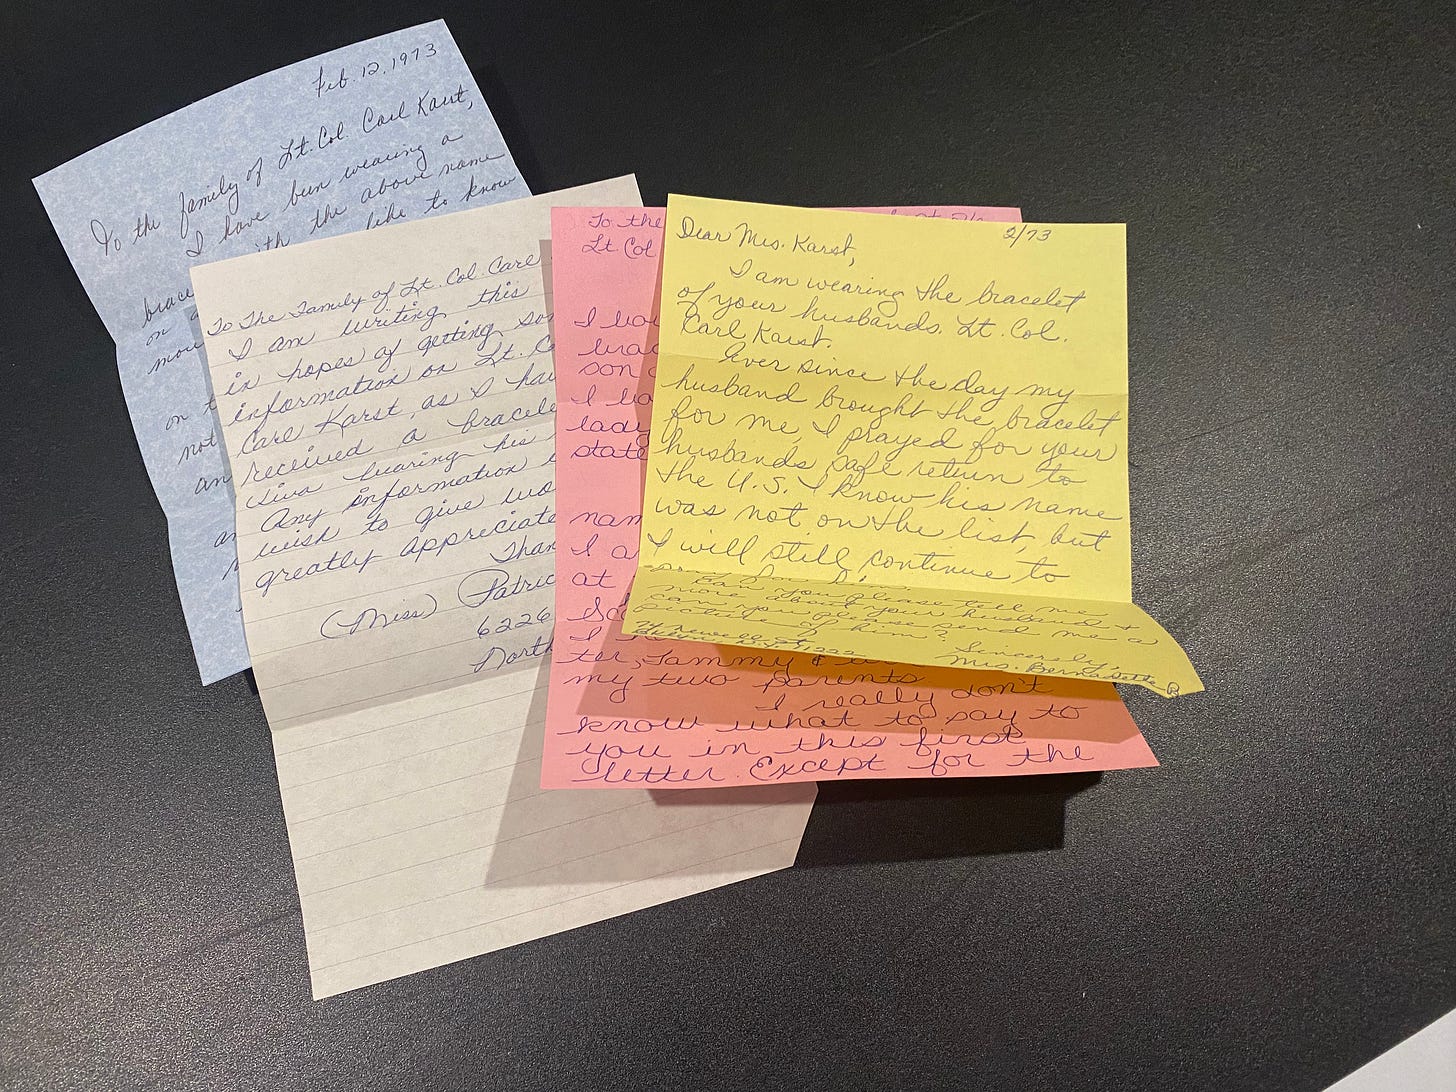 Feb. 12, 1973
To the family of Lt. Col. Carl Karst,
I have been wearing a
brace with the above name
on like to know
mou
on t
not
an
To The Family of Lt. Col. Carl
I am writing this
in hopes of getting som
information on Lt. C
Carl Karst, as I hav
received a bracele
Viva bearing his
Any information
wish to give wo
greatly appreciate
Than
(Miss) Patric
6226
North
To the
Lt. Col
I ha
brac
son
I ha
lady
state
nam
I a
at
Sc
I
ter, Tammy &
my two parents
I really don't
know what to say to
you in this first
letter. Except for the
2/73
Dear Mrs. Karst,
I am wearing the bracelet
of your husbands Lt. Col.
Carl Karst.
Ever since the day my
husband brought the bracelet
for me, I prayed for your
husbands safe return to
the U.S. I know his name
was not on the list, but
I will still continue to
Can you please tell me
more about your husband &
can you please send me a
picture of him?
Sincerely,
Mrs. Bernadette